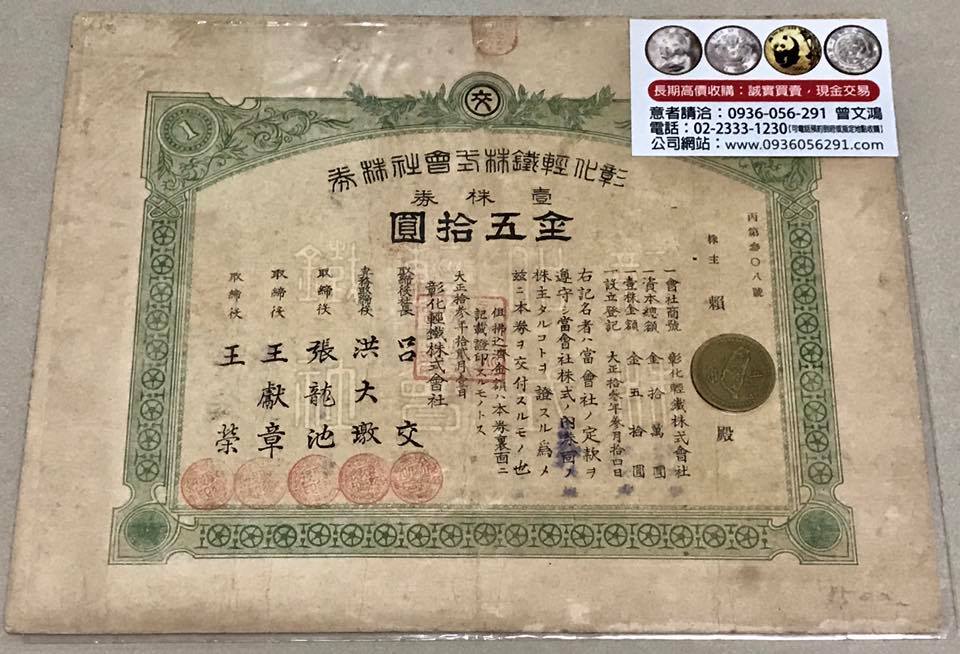 長期高價收購：誠實買賣，現金交易
意者請洽：0936-056-291 曾文鴻
電話：02-2333-1230
公司網站：www.0936056291.com
交
1
彰化輕鐵株式會社株券
壹株券
金五拾圓
丙第參〇八號
株主 賴 殿
一會社商號 彰化輕鐵株式會社
一資本總額 金拾萬圓
一壹株金額 金五拾圓
一設立登記 大正拾參年參月拾四日
右記名者ハ當會社ノ定款ヲ
遵守シ當會社株式ノ內
株主タルコトヲ證スル爲メ
玆ニ本券ヲ交付スルモノ也
但拂込濟金額ハ本券裏面ニ
記載證印スルモノトス
大正拾參年拾貳月壹日
彰化輕鐵株式會社
取締役社長 呂交
專務取締役 洪大墩
取締役 張龍池
取締役 王獻章
取締役 王榮